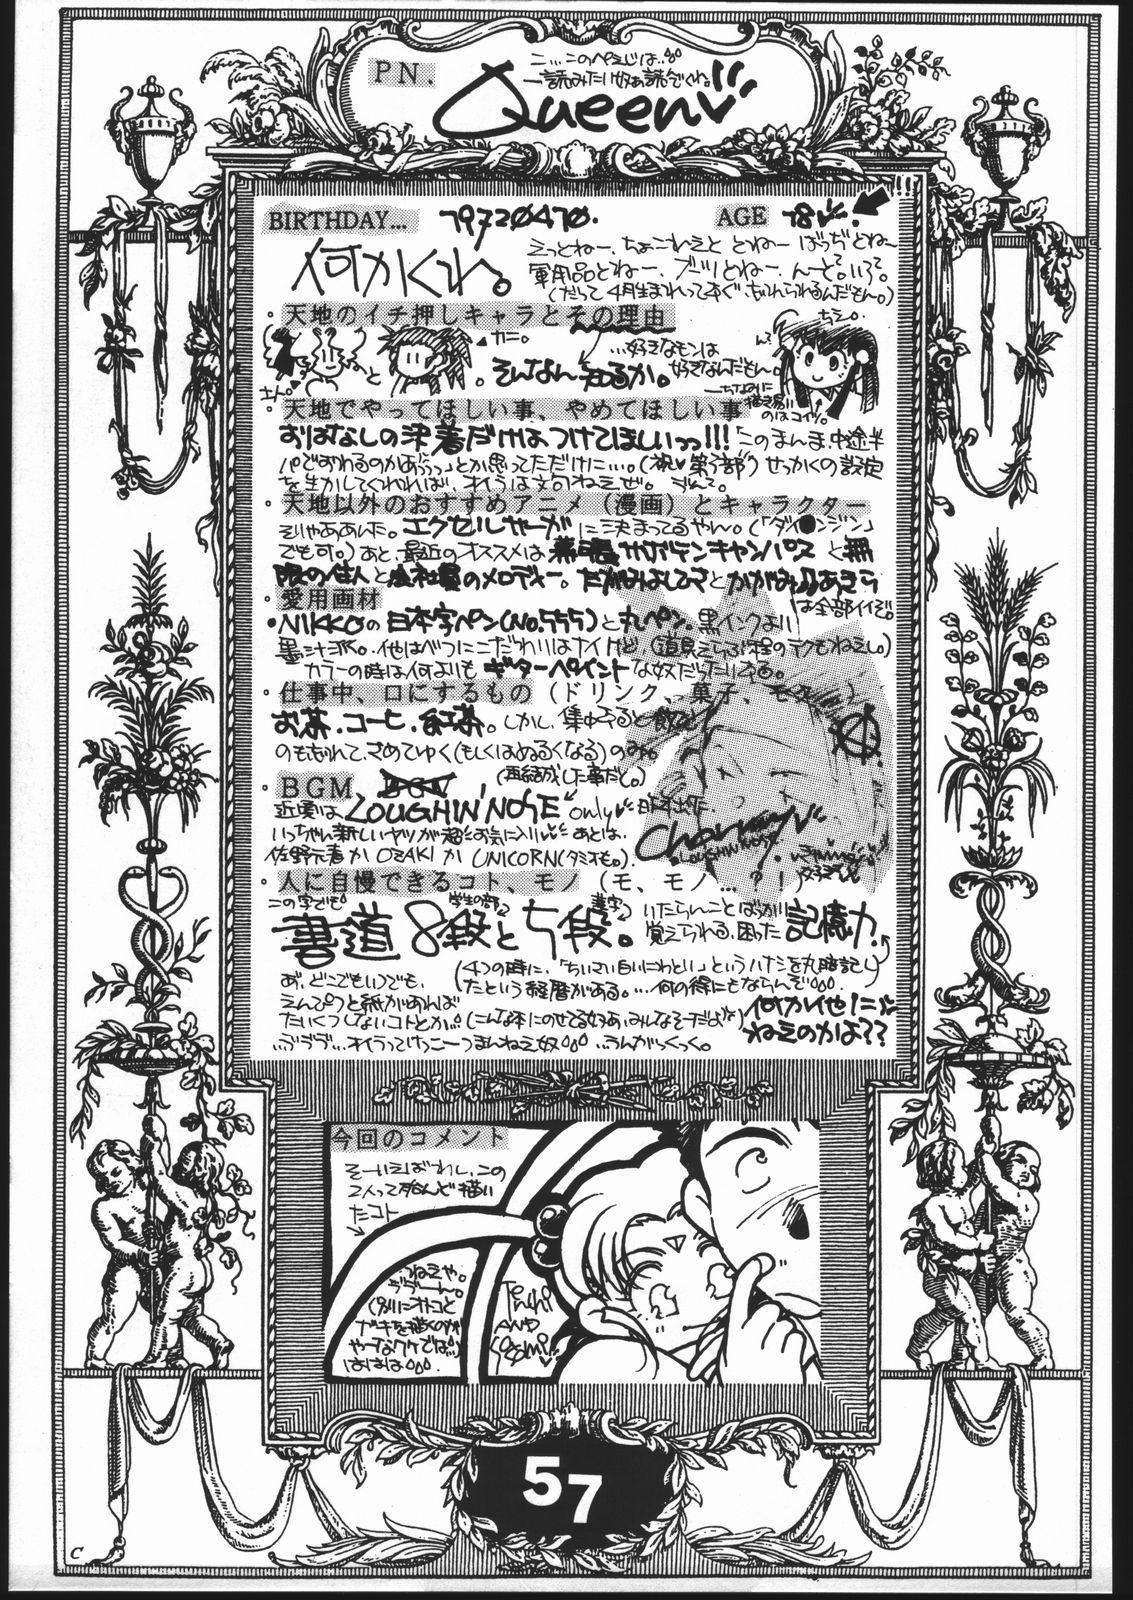 PN.
こ…このぺぇじは…
読みたい奴ぁ読んでくれ。
Queen
BIRTHDAY… 19720410.
AGE 18
何かくれ。
えっとねー、ちょこれえと とねー ばっぢとねー
軍用品とねー、ブーツとねー、んーと。いろいろ
(だって4月生まれってすぐ、忘れられるんだもん。)
・天地のイチ押しキャラとその理由
と
カニ。
そんなん知るか。
…好きなモンは
好きなんだもん。
ちなみに
描き易い
のはコイツ。
チシ。
・天地でやってほしい事、やめてほしい事
おはなしの決着だけはつけてほしいっっ!!!
「このまんま中途半
パでおわるのかぁぅっっ」とか思ってただけに…。(祝 第3部)せっかくの設定
を生かしてくれれば、オイラは文句ねえぜ。
・天地以外のおすすめアニメ(漫画)とキャラクター
そりゃああた。エクゼルシャーガ に決まってるやん。(「ダイ●ンジン」
でも可。)あと、最近のオススメは サボテンキャンパスと無
限の住人と会社員のメロディー。だがみほしてさとかがみあきら
は全部イイぞ。
・愛用画材
・NIKKOの日本字ペン(No.555)と丸ペン。黒インクより
墨汁派。他はべつにこだわりはナイけど、(道具えらぶ程のテクもねえし)
カラーの時は何よりもギターペイントな奴だったりする。
・仕事中、口にするもの(ドリンク、菓子、モク…)
お茶、コーヒ、紅茶。しかし、集中すると飲む
のも忘れて、さめてゆく(もしくはぬるくなる)のみ。
・BGM
(再結成した事だし。)
近頃は、LOUGHIN'NOSE only
いっちゃん新しいヤツが超お気に入り あとは、
佐野元春か OZAKI か UNICORN(タミオも)。
Charmy
LOUGHIN'NOSE
・人に自慢できるコト、モノ(モ、モノ…?!)
この字でも
書道8段と5段。
学生の部
漢字
いたらんことばっかり
覚えてられる、困った記憶力。
(4つの時に、「ちいさい白いにわとり」というハナシを丸暗記し
たという経歴がある。…何の得にもならんぞ)
あ、どこでもいつでも、
えんぴつと紙があれば
たいくつしないコトとか…(こんな本にのせてる奴ぁ、みんなそーだよな)
何か他に
ねえのかよ??
ぶつぶつ…オイラってけっこーつまんねえ奴 うんがらくっく。
今回のコメント
そーいえばわし、この
2人って殆んど描い
たコト
ねえや。
うぅーん。
(別にオトコと
ガキを描くのが
やーなワケでは)
ははは
Tenchi
AND
Sasami
57
C